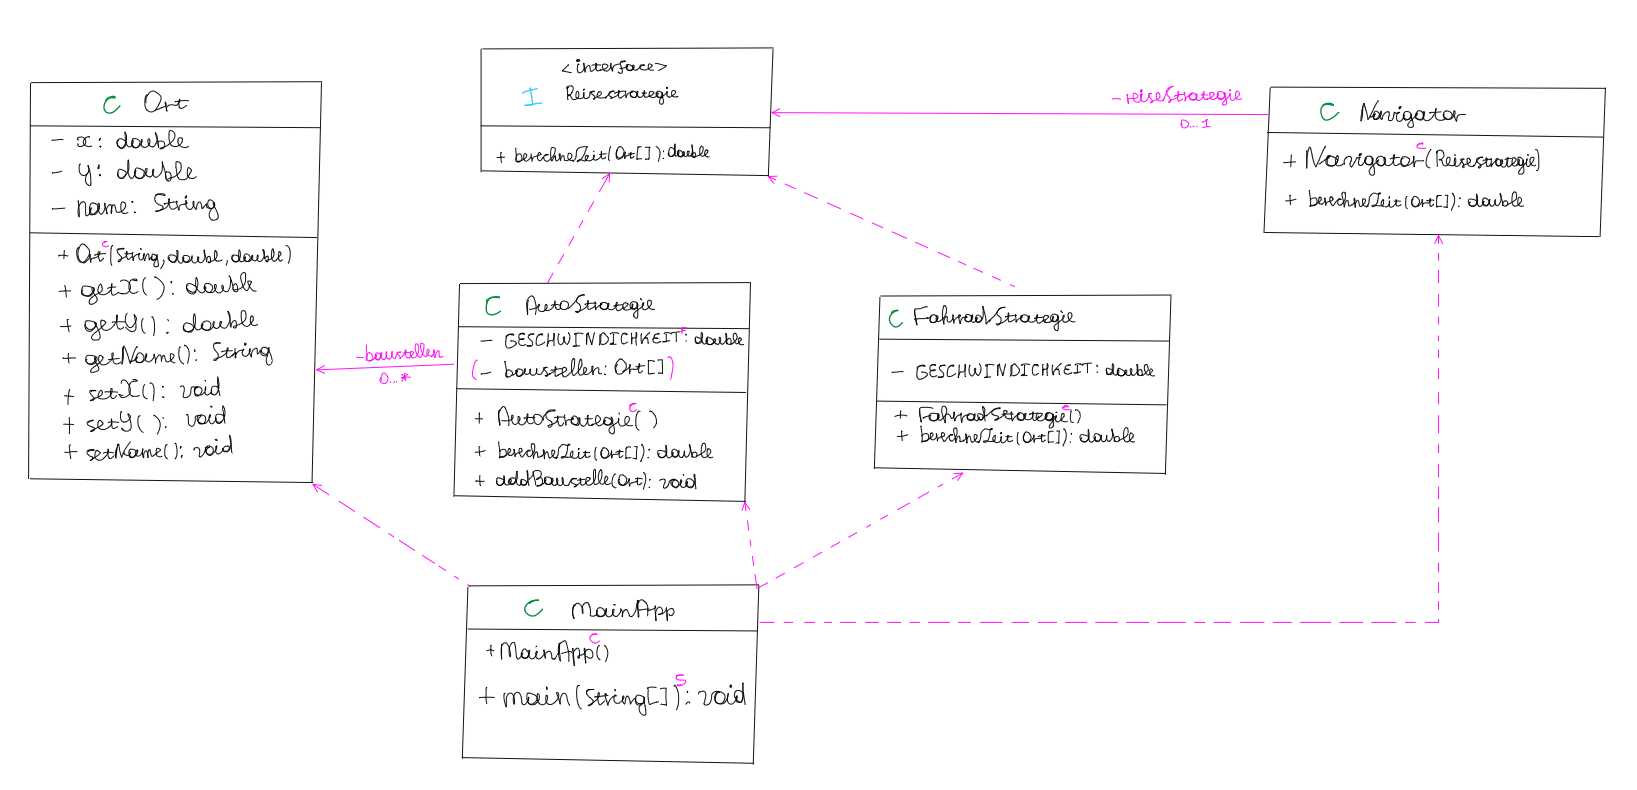 C Ort
- x: double
- y: double
- name: String
+ Ort(String,doubl,double)
c
+ getX(): double
+ getY(): double
+ getName(): String
+ setX(): void
+ setY(): void
+ setName(): void
<interface>
I Reisestrategie
+ berechneZeit(Ort[]): double
- reiseStrategie
0...1
C Navigator
+ Navigator(Reisestrategie)
c
+ berechneZeit(Ort[]): double
- baustellen
0...*
C AutoStrategie
- GESCHWINDICHKEIT: double
F
(- baustellen: Ort[])
+ AutoStrategie()
c
+ berechneZeit(Ort[]): double
+ addBaustelle(Ort): void
C FahrradStrategie
- GESCHWINDICHKEIT: double
+ FahrradStrategie()
c
+ berechneZeit(Ort[]): double
C MainApp
+MainApp()
c
+ main(String[]): void
s